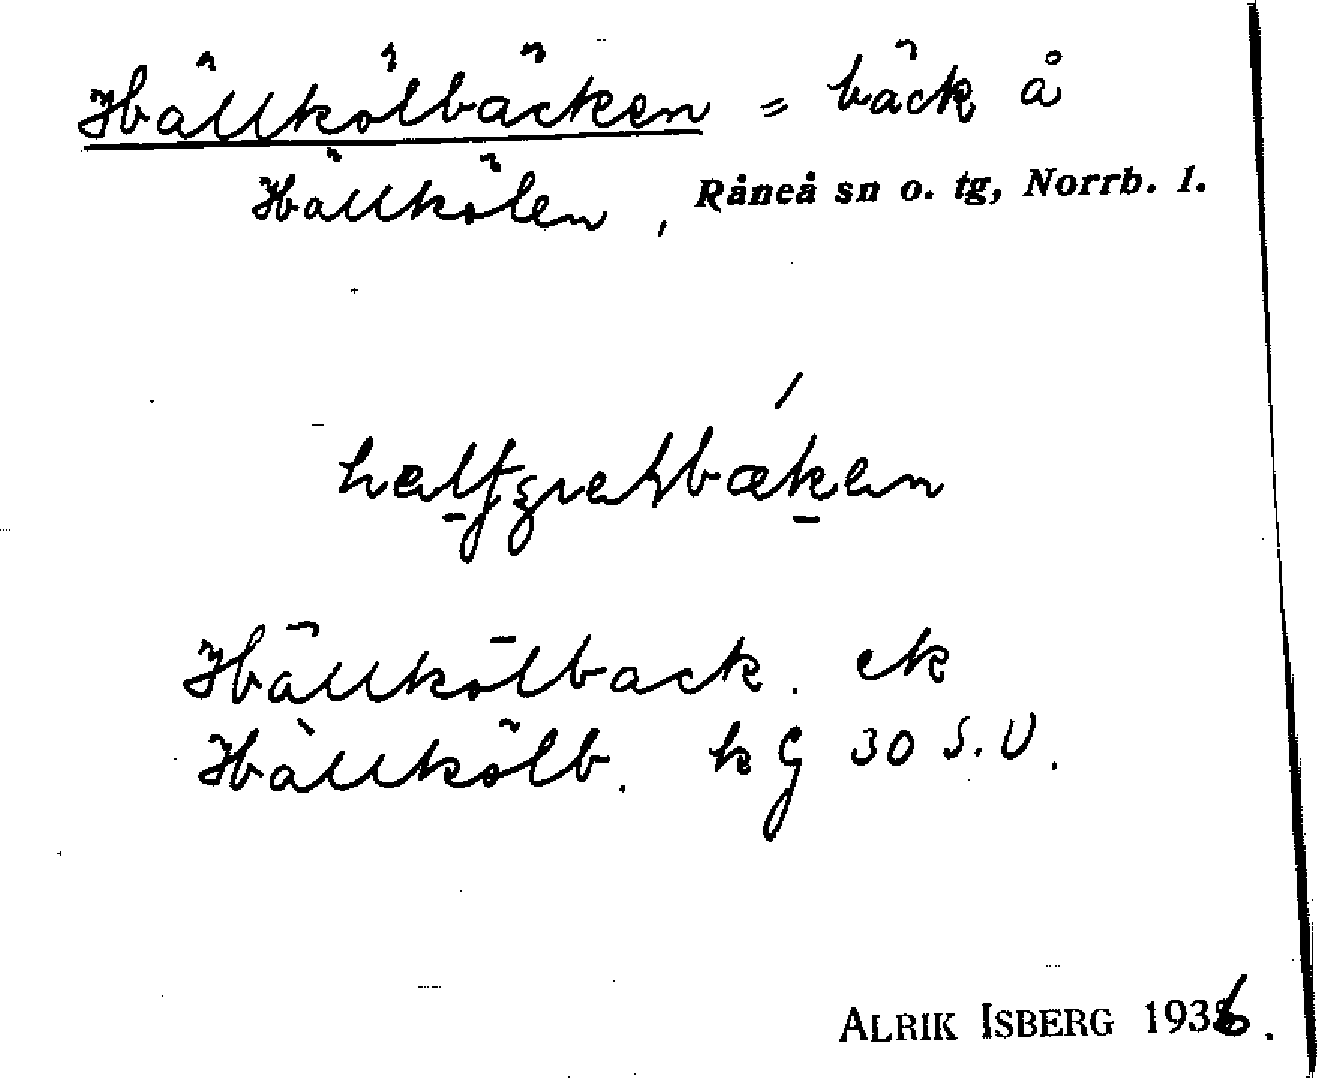 Hällkölbäcken = bäck å
Hällkölen, Råneå sn o. tg, Norrb. l.
Hällkölbäck. ek
Hällkölb. kG 30 S.V.
ALRIK ISBERG 1936.